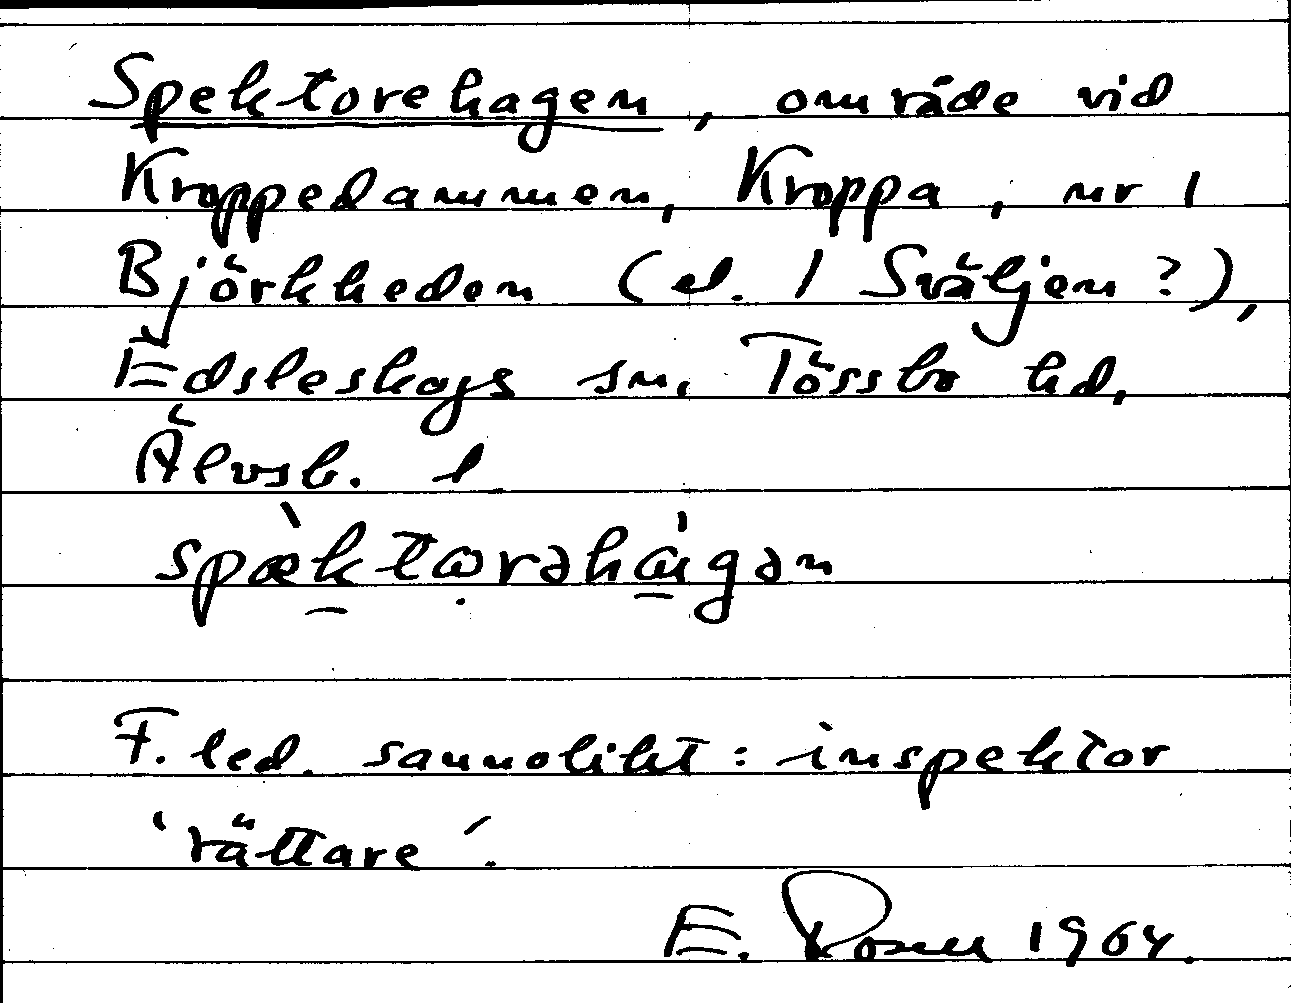 Spektorehagen, område vid
Kroppedammen, Kroppa, nr 1
Björkheden (el. 1 Sväljen?),
Edsleskogs sn. Tössbo hd,
Älvsb. l
spæ̀ktωrəhα̍gən
F. led. sannolikt: inspektor
'rättare'.
E. Rosell 1964.